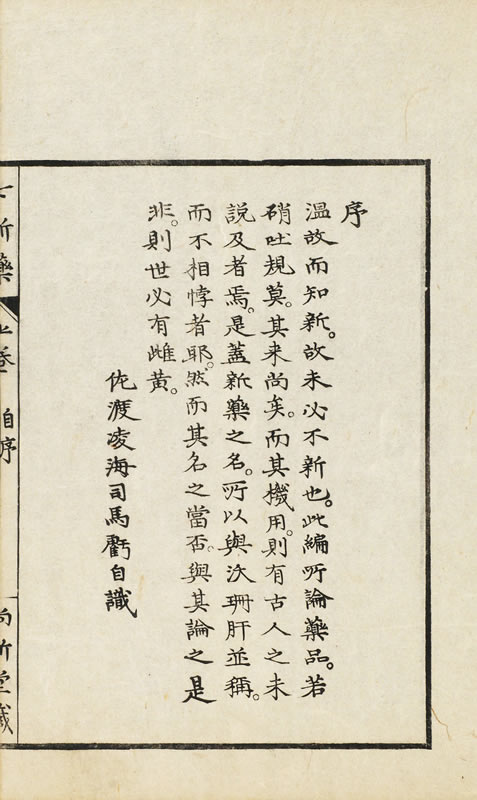 序
温故而知新。故未必不新也。此編所論藥品。若
硝吐規莫。其来尚矣。而其機用。則有古人之未
說及者焉。是蓋新藥之名。所以與沃珊肝並稱。
而不相悖者耶。然而其名之當否。與其論之是
非。則世必有雌黃。
佐渡凌海司馬虧自識
七新藥 上卷 自序 尚新堂藏